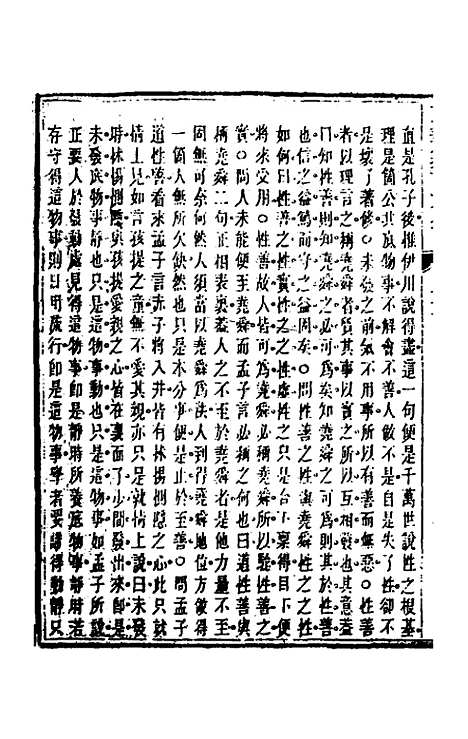 直是孔子後惟伊川說得盡這一句便是千萬世說性之根基
理是箇公共底物事不解會不善人做不是自是失了性卻不
是壞了著修○未發之前氣不用事所以有善而無惡○性善
者以理言之稱堯舜者質其事以實之所以互相發也其意蓋
曰知性善則知堯舜之必可為矣知堯舜之可為則其於性善
也信之益篤而守之益固矣○問性善之性與堯舜性之之性
如何曰性善之性實性之之性虛性之只是合下稟得目下便
將來受用○性善故人皆可為堯舜必稱堯舜所以驗性善之
實○問人未能便至堯舜而孟子言必稱之何也曰道性善與
稱堯舜二句正相表裏蓋人之不至於堯舜者是他力量不至
固無可奈何然人須當以堯舜為法人到得堯舜地位方做得
一箇人無所欠缺然也只是本分事便是止於至善○問孟子
道性善看來孟子言赤子將入井皆有怵惕惻隱之心此只就
情上見如言孩提之童無不愛其親亦只是就情上說曰未發
時怵惕惻隱與孩提愛親之心皆在裏面了少間發出來即是
未發底物事靜也只是這物事動也只是這物事如孟子所說
正要人於發動處見得是這物事即是靜時所養底物事靜時若
存守得這物事則日用流行即是這物事學者要識得動靜只